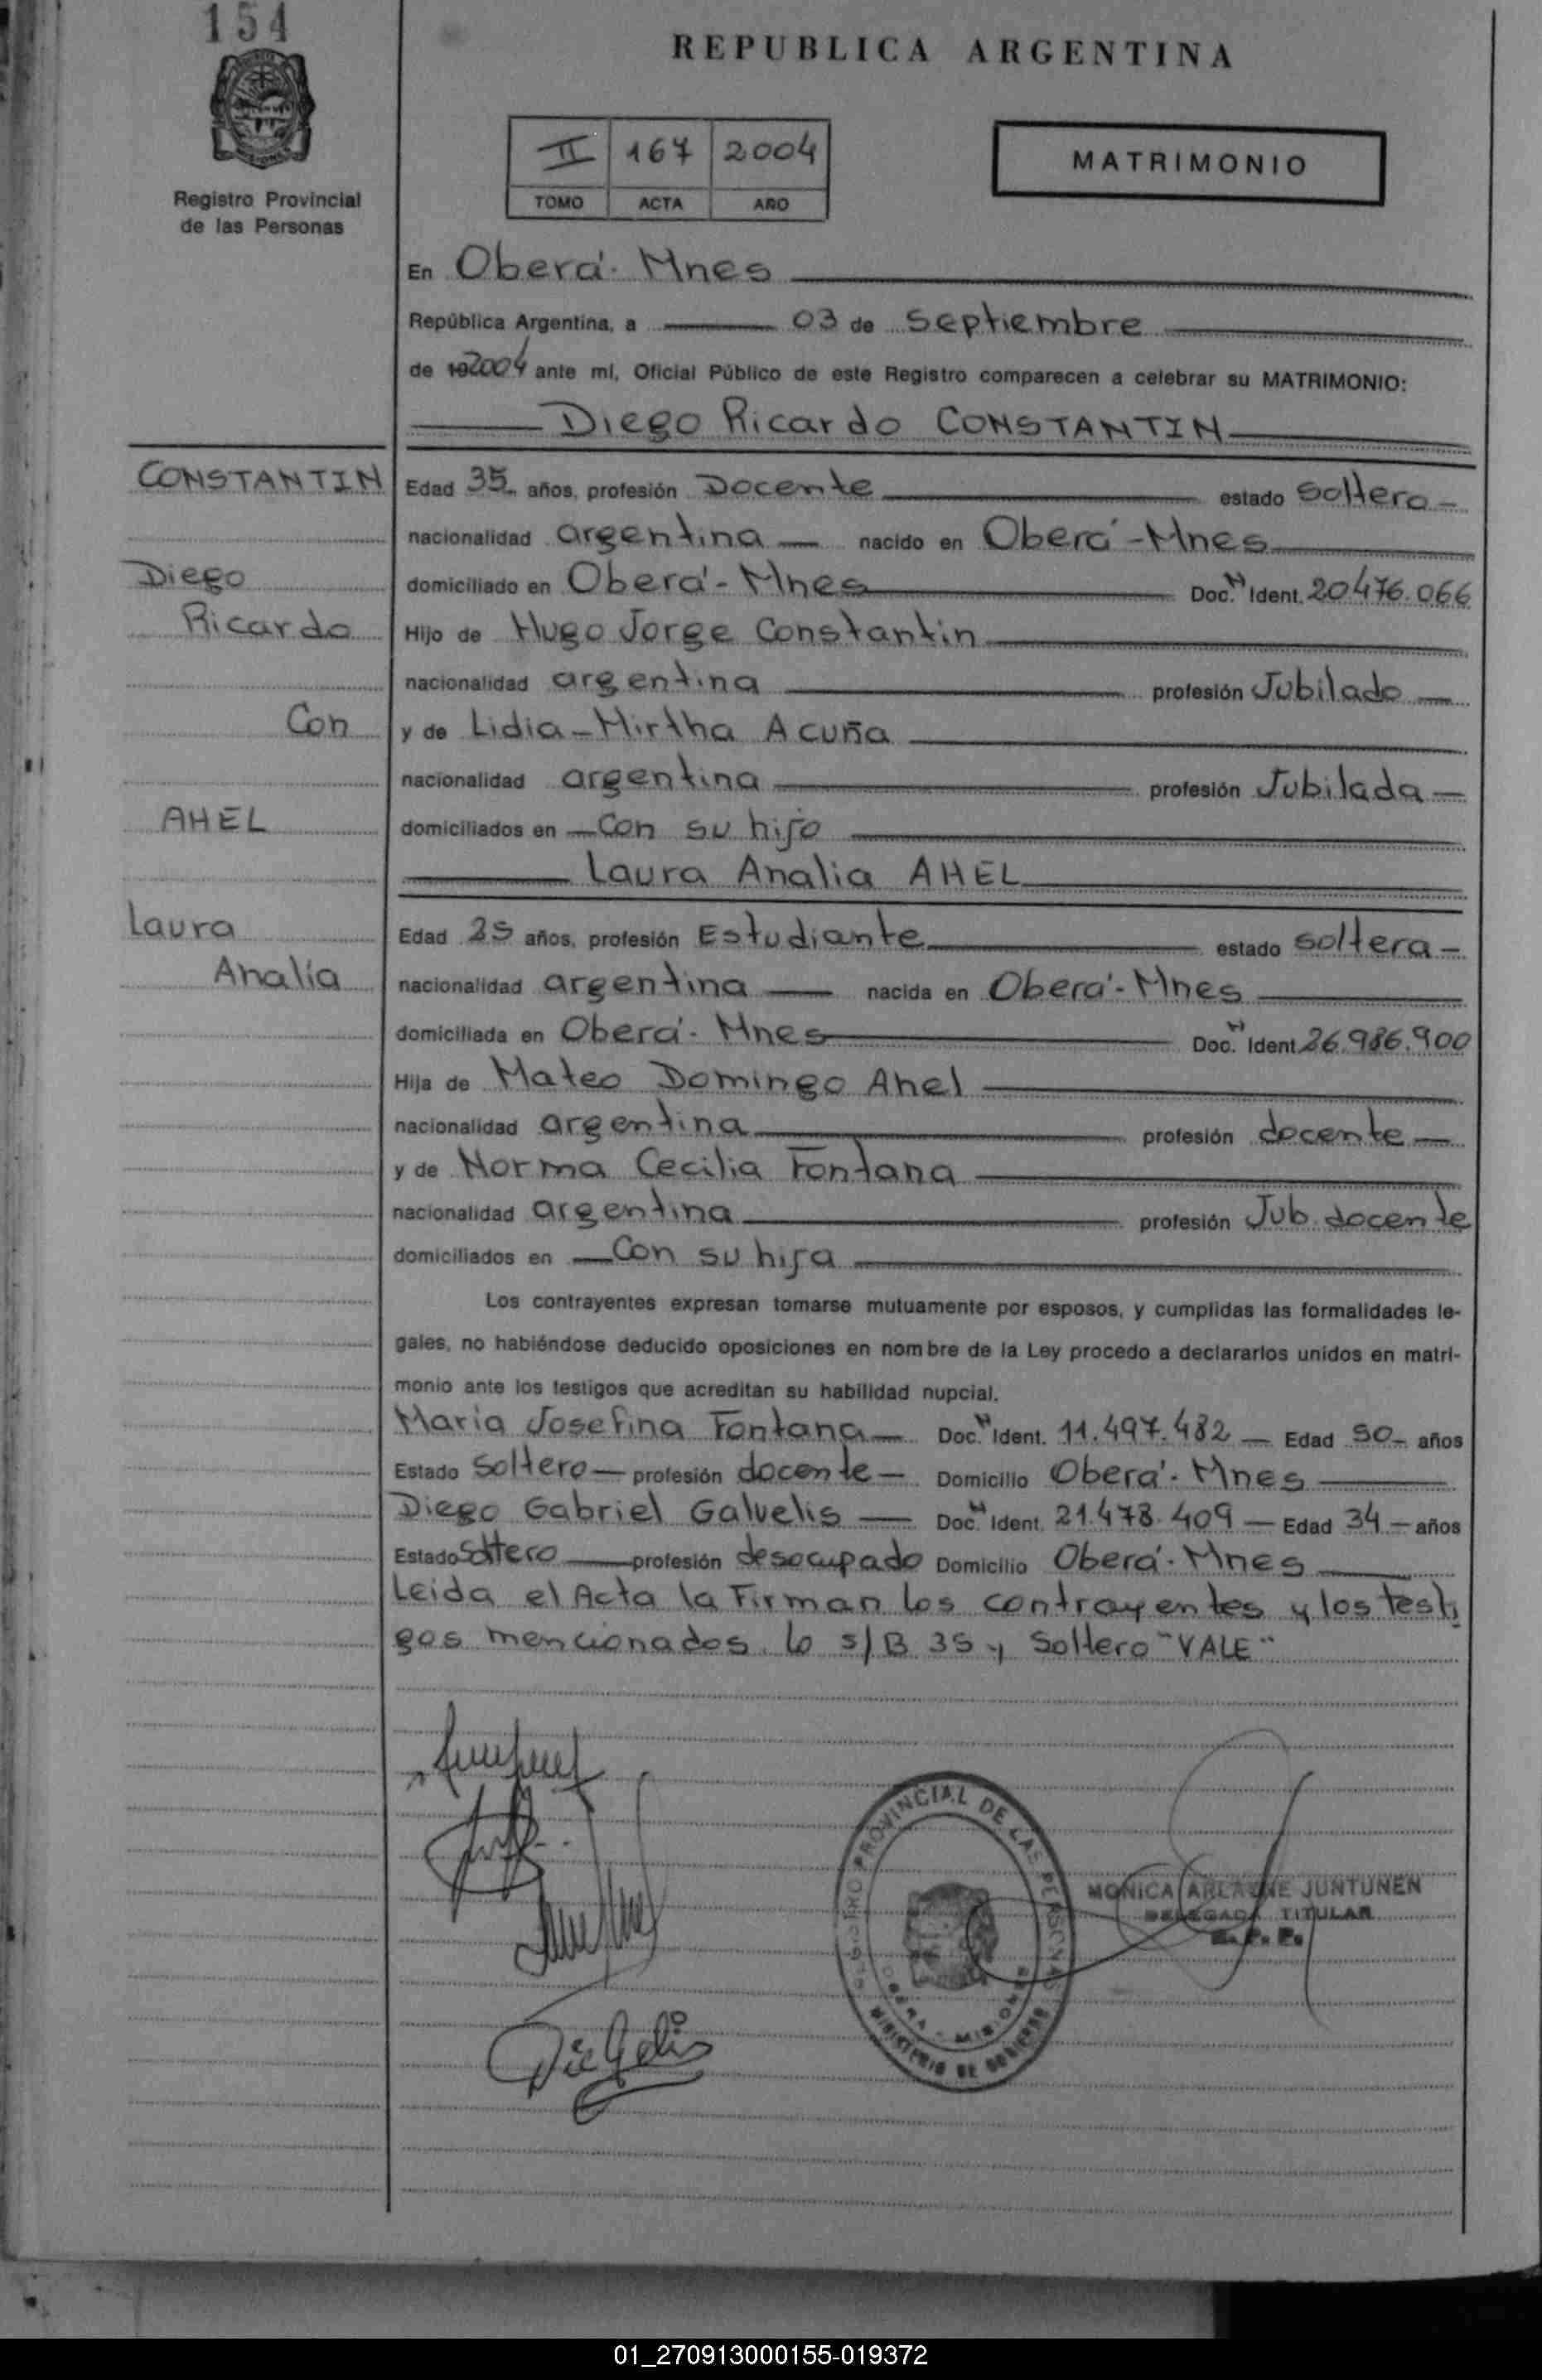 154
REPUBLICA ARGENTINA
Registro Provincial
de las Personas
II 167 2004
TOMO ACTA AÑO
MATRIMONIO
En Oberá - Mnes
República Argentina, a 03 de Septiembre
de 19 2004 ante mí, Oficial Público de este Registro comparecen a celebrar su MATRIMONIO:
Diego Ricardo CONSTANTIN
CONSTANTIN
Diego
Ricardo
Con
AHEL
Laura
Analía
Edad 35 años, profesión Docente estado soltero
nacionalidad argentina nacido en Oberá - Mnes
domiciliado en Oberá - Mnes Doc. N Ident. 20476.066
Hijo de Hugo Jorge Constantin
nacionalidad argentina profesión Jubilado
y de Lidia - Mirtha Acuña
nacionalidad argentina profesión Jubilada
domiciliados en Con su hijo
Laura Analia AHEL
Edad 25 años, profesión Estudiante estado soltera
nacionalidad argentina nacida en Oberá - Mnes
domiciliada en Oberá - Mnes Doc. N Ident. 26.986.900
Hija de Mateo Domingo Ahel
nacionalidad argentina profesión docente
y de Norma Cecilia Fontana
nacionalidad argentina profesión Jub. docente
domiciliados en Con su hija
Los contrayentes expresan tomarse mutuamente por esposos, y cumplidas las formalidades le-
gales, no habiéndose deducido oposiciones en nombre de la Ley procedo a declararlos unidos en matri-
monio ante los testigos que acreditan su habilidad nupcial.
Maria Josefina Fontana Doc. N Ident. 11.497.482 Edad 50 años
Estado Soltero profesión docente Domicilio Oberá - Mnes
Diego Gabriel Galvelis Doc. N Ident. 21.478.409 Edad 34 años
Estado Soltero profesión desocupado Domicilio Oberá - Mnes
Leida el Acta la Firman los contrayentes y los testi
gos mencionados. lo s/B 35 y Soltero "VALE"
REGISTRO PROVINCIAL DE LAS PERSONAS
OBERA - MISIONES
MINISTERIO DE GOBIERNO
MONICA ARLAINE JUNTUNEN
DELEGADA TITULAR
R. P. P.
01_270913000155-019372